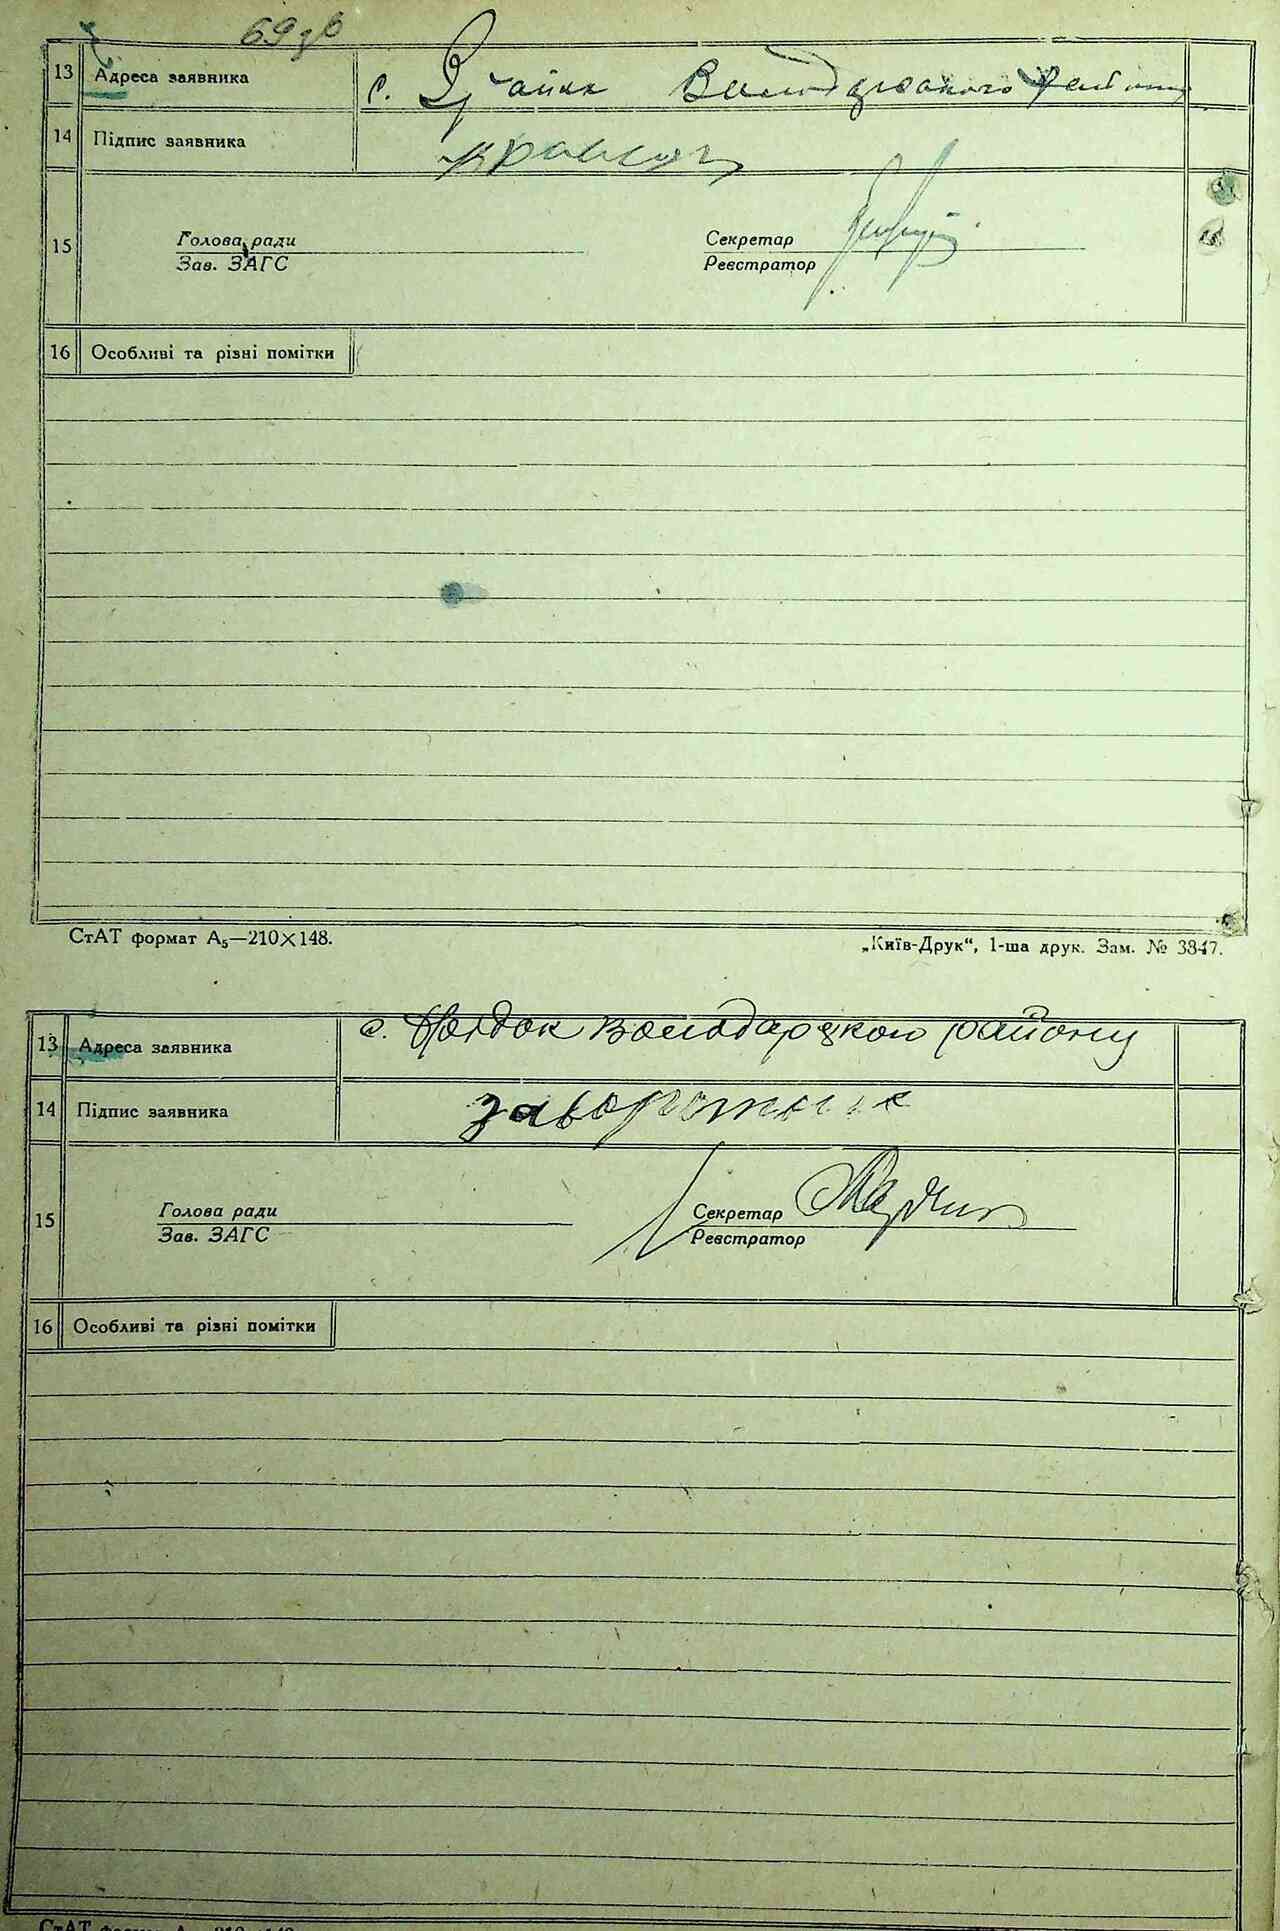 69 зв
13 Адреса заявника с. Володарського району
14 Підпис заявника
15 Голова ради Секретар
Зав. ЗАГС Реєстратор
16 Особливі та різні помітки
СтАТ формат А₅—210×148. „Київ-Друк“, 1-ша друк. Зам. № 3347.
13 Адреса заявника с. Володарського району
14 Підпис заявника заворотник
15 Голова ради Секретар
Зав. ЗАГС Реєстратор
16 Особливі та різні помітки